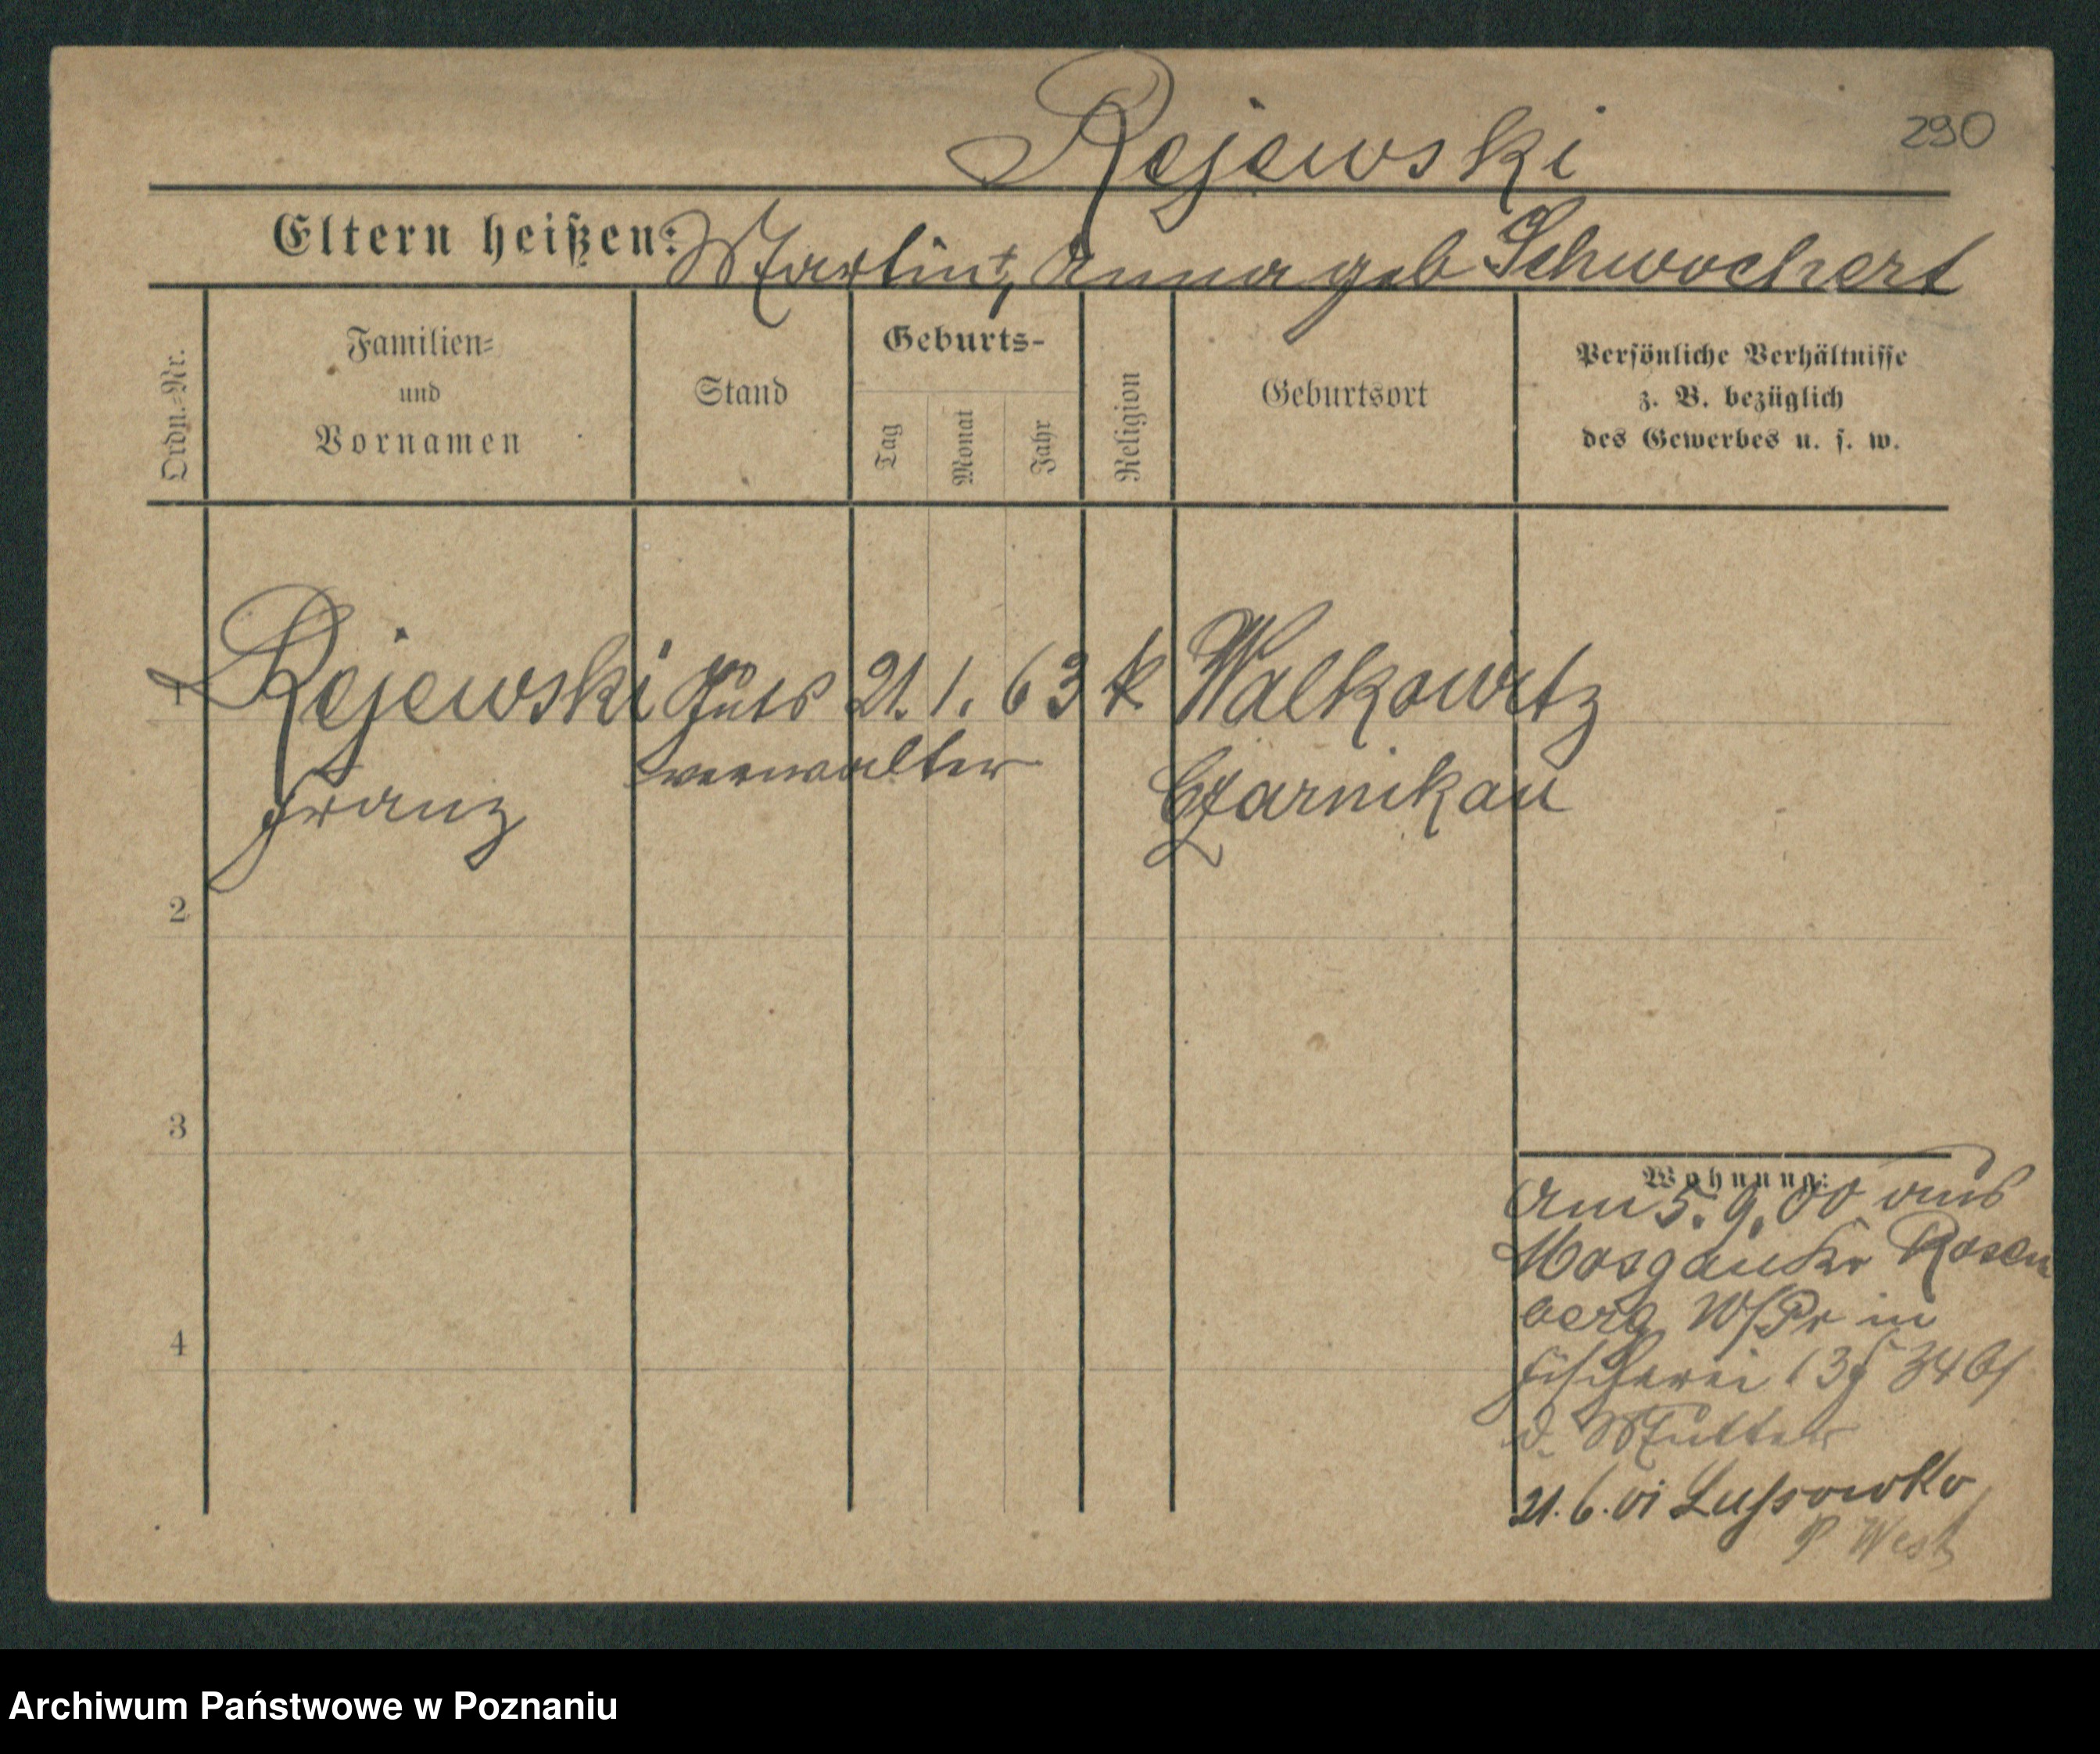 Rejewski
290
Eltern heißen: Martin †, Anna geb Schwochert
Ordn.-Nr.
Familien-
und
Vornamen
Stand
Geburts-
Tag
Monat
Jahr
Religion
Geburtsort
Persönliche Verhältnisse
z. B. bezüglich
des Gewerbes u. s. w.
1 Rejewski Guts 21. 1. 63 k Walkowitz
verwalter
Franz
Czarnikau
2
3
4
Wohnung:
Am 5. 9. 00 aus
Kr Rosen
berg W/Pr in
Fischerei
d. Mutter
21. 6. 01 Lussowko
P West
Archiwum Państwowe w Poznaniu